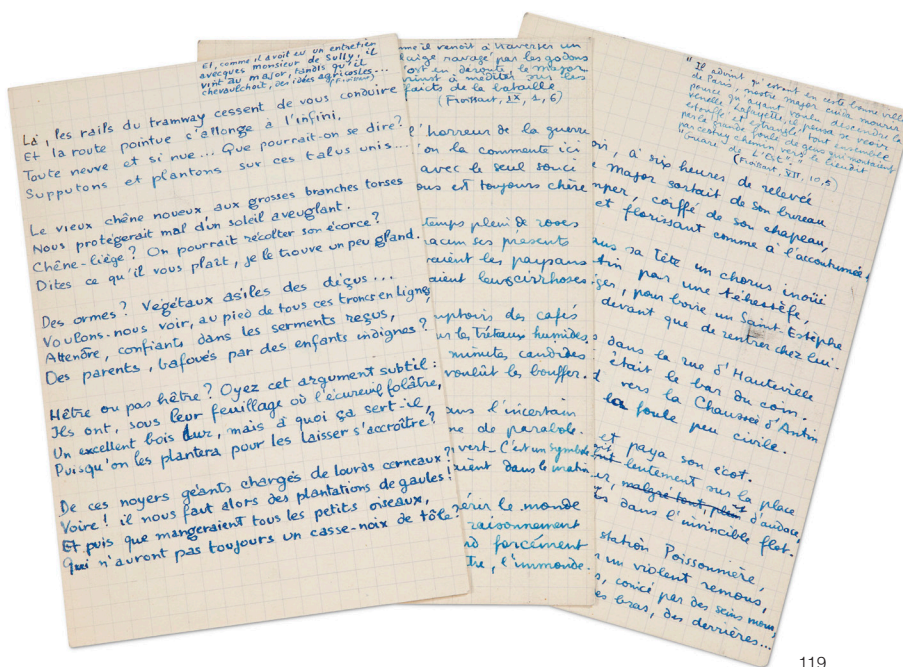 Et, comme il avoit eu un entretien
avecques monsieur de Sully, il
vint au major, tandis qu'il
chevauchoit, des idées agricosles...
(Froissart)
Là, les rails du tramway cessent de vous conduire
Et la route pointue s'allonge à l'infini,
Toute neuve et si nue... Que pourrait-on se dire?
Supputons et plantons sur ces talus unis...
Le vieux chêne noueux, aux grosses branches torses
Nous protégerait mal d'un soleil aveuglant.
Chêne-liège? On pourrait récolter son écorce?
Dites ce qu'il vous plaît, je le trouve un peu gland.
Des ormes? Végétaux asiles des déçus...
Voulons-nous voir, au pied de tous ces troncs en ligne,
Attendre, confiants dans les serments reçus,
Des parents, bafoués par des enfants indignes?
Hêtre ou pas hêtre? Oyez cet argument subtil:
Ils ont, sous leur feuillage où l'écureuil folâtre,
Un excellent bois dur, mais à quoi ça sert-il,
Puisqu'on les plantera pour les laisser s'accroître?
De ces noyers géants chargés de lourds cerneaux?
Voire! il nous faut alors des plantations de gaules!
Et puis que mangeraient tous les petits oiseaux,
Qui n'auront pas toujours un casse-noix de tôle?
me il venoit à traverser un
ravagé par les godons
ost en déroute le major
à méditer sur les
faicts de la bataille
(Froissart, IX, 2, 6)
l'horreur de la guerre
on la commente ici
avec le seul souci
ous est toujours chère
temps plein de roses
acun ses présents
raient les paysans
aient leurs cirrhoses
mptoirs des cafés
ur les tréteaux humides
minutes candides
voulût les bouffer.
ans l'incertain
ne de parabole.
vert. C'est un symbole
aient dans le matin
le monde
raisonnement
d forcément
tre, l'immonde.
"Il advint qu'estant en ceste bonne ville
de Paris, nostre major cuida mourir
pource qu'ayant voulu descendre la
venelle Lafayette, il pensa se veoir
estouffé et étranglé tout ensemble
par la grande foule de gens qui montaient
par cestuy chemin vers le benoist
Square de l'Est".
(Froissart, XII, 10, 5)
oir, à six heures de relevée
major sortait de son bureau
mper, coiffé de son chapeau,
et florissant comme à l'accoutumée.
ans sa tête un chorus inouï
tin par une téhestèfe,
ges, pour boire un Saint Estèphe
devant que de rentrer chez lui.
dans la rue d'Hauteville
était le bar du coin.
d vers la Chaussée d'Antin
la foule peu civile.
et paya son écot.
lentement sur la place
ur, malgré tout plein d'audace,
ts dans l'invincible flot.
station Poissonnière,
un violent remous,
s, coincé par des seins mous,
es bras, des derrières...
119